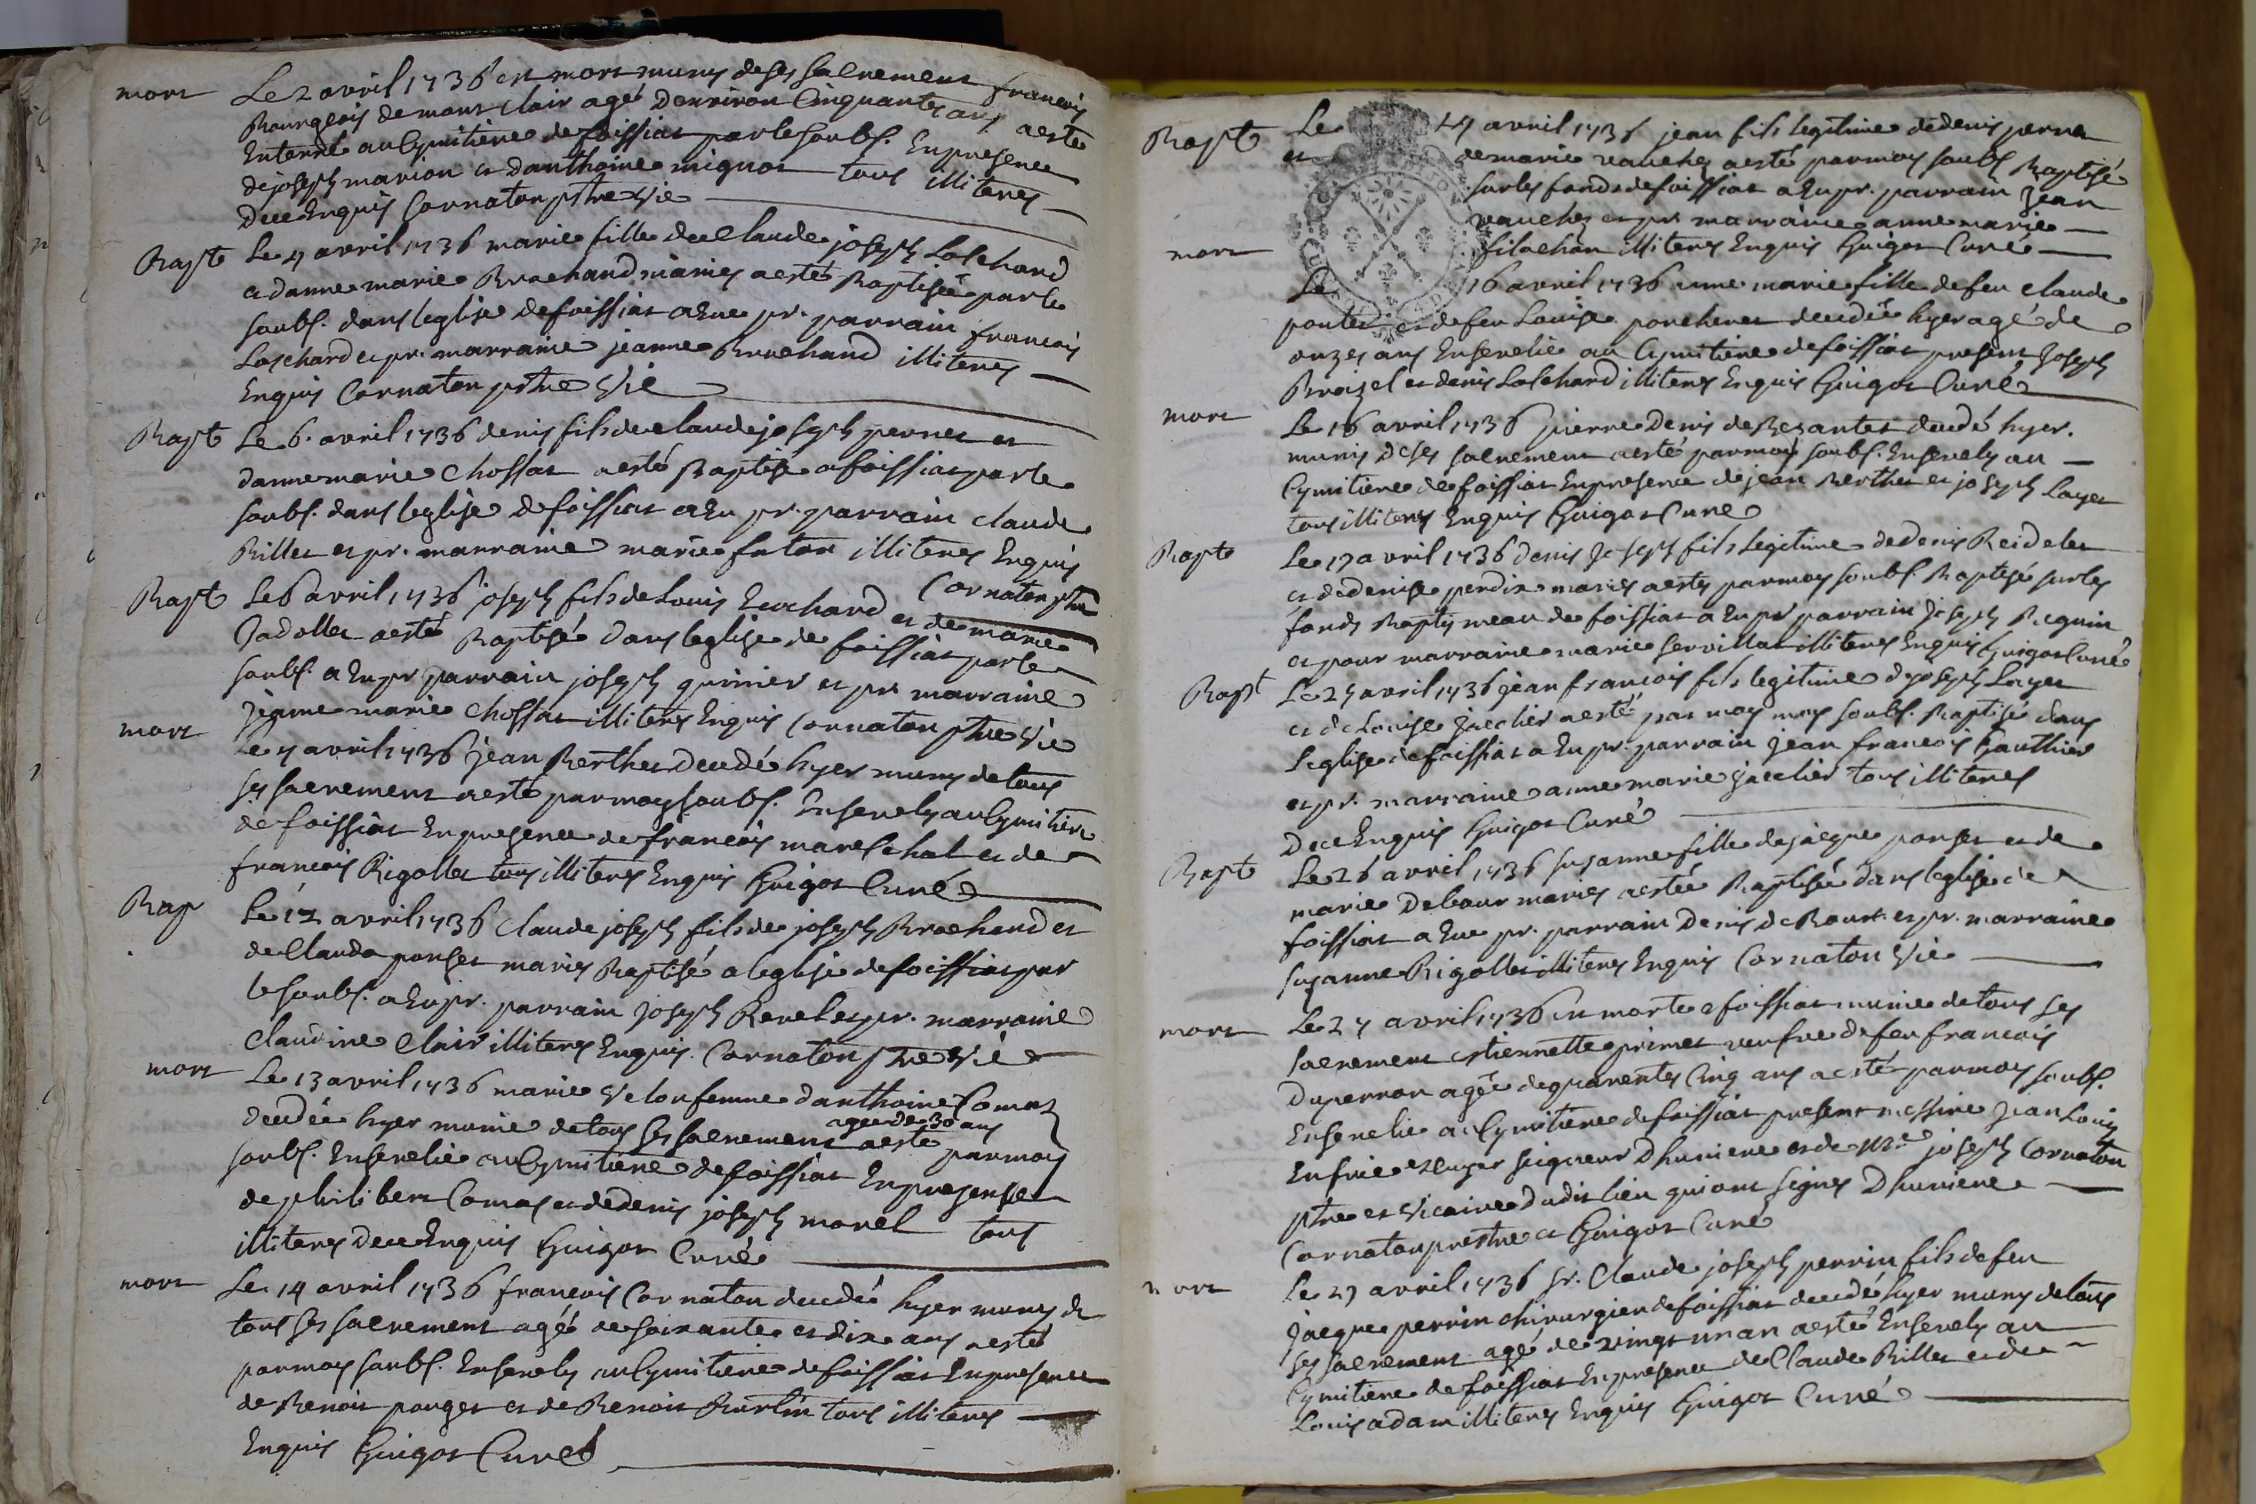 mort
Le 2 avril 1736 est mort muny de ses sacrement francois
Bourgeois de mont clair agé denviron Cinquantes ans aesté
Enterré au Cymitiere de foissiat par le soubs. En presence
de joseph marion et danthoine mignot tous illiterés
de ce Enquis Cornaton ptre vic
Bapt
Le 4 avril 1736 marie fille de Claude joseph Loschard
et danne marie Brochand mariés aestés Baptisée par le
soubs. dans leglise de foissiat a Eue pr. parrain francois
Loschard et pr. marraine jeanne Brochand illiterés
Enquis Cornaton ptre vic
Bapt
Le 6. avril 1736 denis fils de claude joseph pernet et
danne marie Chossat aesté Baptise a foissiat par le
soubs. dans leglise de foissiat a Eu pr. parrain claude
Billet et pr. marraine marie futon illiterés Enquis
Cornaton ptre
Bapt
Le 6 avril 1736 joseph fils de Louis Ecochard et de marie
Jadollet aesté Baptisé dans leglise de foissiat par le
soubs. a Eu pr parrain joseph quinier et pr marraine
jeanne marie Chossat illiterés Enquis Cornaton ptre vic
mort
Le 7 avril 1736 jean Berthet decedé hyer muny de tous
ses sacrement aesté par moy soubs. Ensevely au Cymitiere
de foissiat En presence de francois mareschal et de
francois Rigollet tous illiterés Enquis Guigot Curé
Bap
Le 12 avril 1736 Claude joseph fils de joseph Brochand et
de Clauda ponset mariés Baptisé a leglise de foissiat par
le soubs. a Eu pr. parrain Joseph Revel et pr. marraine
Claudine Clair illiterés Enquis. Cornaton ptre vic
mort
Le 13 avril 1736 marie velon femme danthoine Comas
decedée hyer munie de tous ses sacrement aesté par moy
agée de 30 ans
soubs. Ensevelie au Cymitiere de foissiat En presense
de philibert Comas et de denis joseph morel tous
illiterés de ce Enquis Guigot Curé
mort
Le 14 avril 1736 francois Cornaton decedé hyer muny de
tous ses sacrement agé de soixante et dix ans aesté
par moy soubs. Ensevely au Cymitiere de foissiat En presence
de Benoit ponget et de Benoit tous illiterés
Enquis Guigot Curé
Bapt
Le 14 avril 1736 jean fils legitime de denis pernet
et de marie vauchez aesté par moy soubs. Baptisé
sur les fonds de foissiat a Eu pr. parrain Jean
vauchez et pr marraine anne marie
filachon illiterés Enquis Guigot Curé
mort
Le 16 avril 1736 anne marie fille de feu claude
pontet et de feu Louise porcheret decedée hyer agé de
onzes ans Ensevelie au Cymitiere de foissiat present Joseph
Broizel et denis Loschard illiterés Enquis Guigot Curé
mort
Le 16 avril 1736 pierre Denis de Besantet decedé hyer.
munis de ses sacrement aesté par moy soubs. Ensevely au
Cymitiere de foissiat En presence de jean Berthet et joseph Layet
tous illiterés Enquis Guigot Curé
Bapt
Le 17 avril 1736 denis Joseph fils legitime de denis Reidelet
et de denise perdix mariés aestés par moy soubs. Baptisé sur les
fonds Baptismeau de foissiat a Eu pr parrain Joseph Beguin
et pour marraine marie servillat illiterés Enquis Guigot Curé
Bapt
Le 25 avril 1736 jean francois fils legitime de joseph Layet
et de Louise Jacclier aesté par moy moy soubs. Baptisé dans
leglise de foissiat a Eu pr. parrain jean francois Gauthier
et pr. marraine anne marie jacclier tous illiterés
De ce Enquis Guigot Curé
Bapt
Le 26 avril 1736 susanne fille de jacque ponset et de
marie Debour mariés aestée Baptisée dans leglise de
foissiat a Eue pr. parrain Denis de Bourt. et pr. marraine
susanne Rigollet illiterés Enquis Cornaton vic
mort
Le 27 avril 1736 est morte a foissiat munie de tous ses
sacrement estiennette primet veufve de feu francois
Duperron agée de quarantes Cinq ans aesté par moy soubs.
Ensevelie au Cymitiere de foissiat present messire Jean Louis
Enfrie escuyer seigneur Dhuniere et de Mre joseph Cornaton
ptre et vicaire dudit lieu qui ont signés Dhuniere
Cornaton prestre et Guigot Curé
mort
Le 27 avril 1736 sr. Claude joseph perrin fils de feu
Jacque perrin chirurgien de foissiat decedé hyer muny de tous
ses sacrement agé de vingt un an aesté Ensevely au
Cymitiere de foissiat En presence de Claude Billet et de
Louis adam illiterés Enquis Guigot Curé